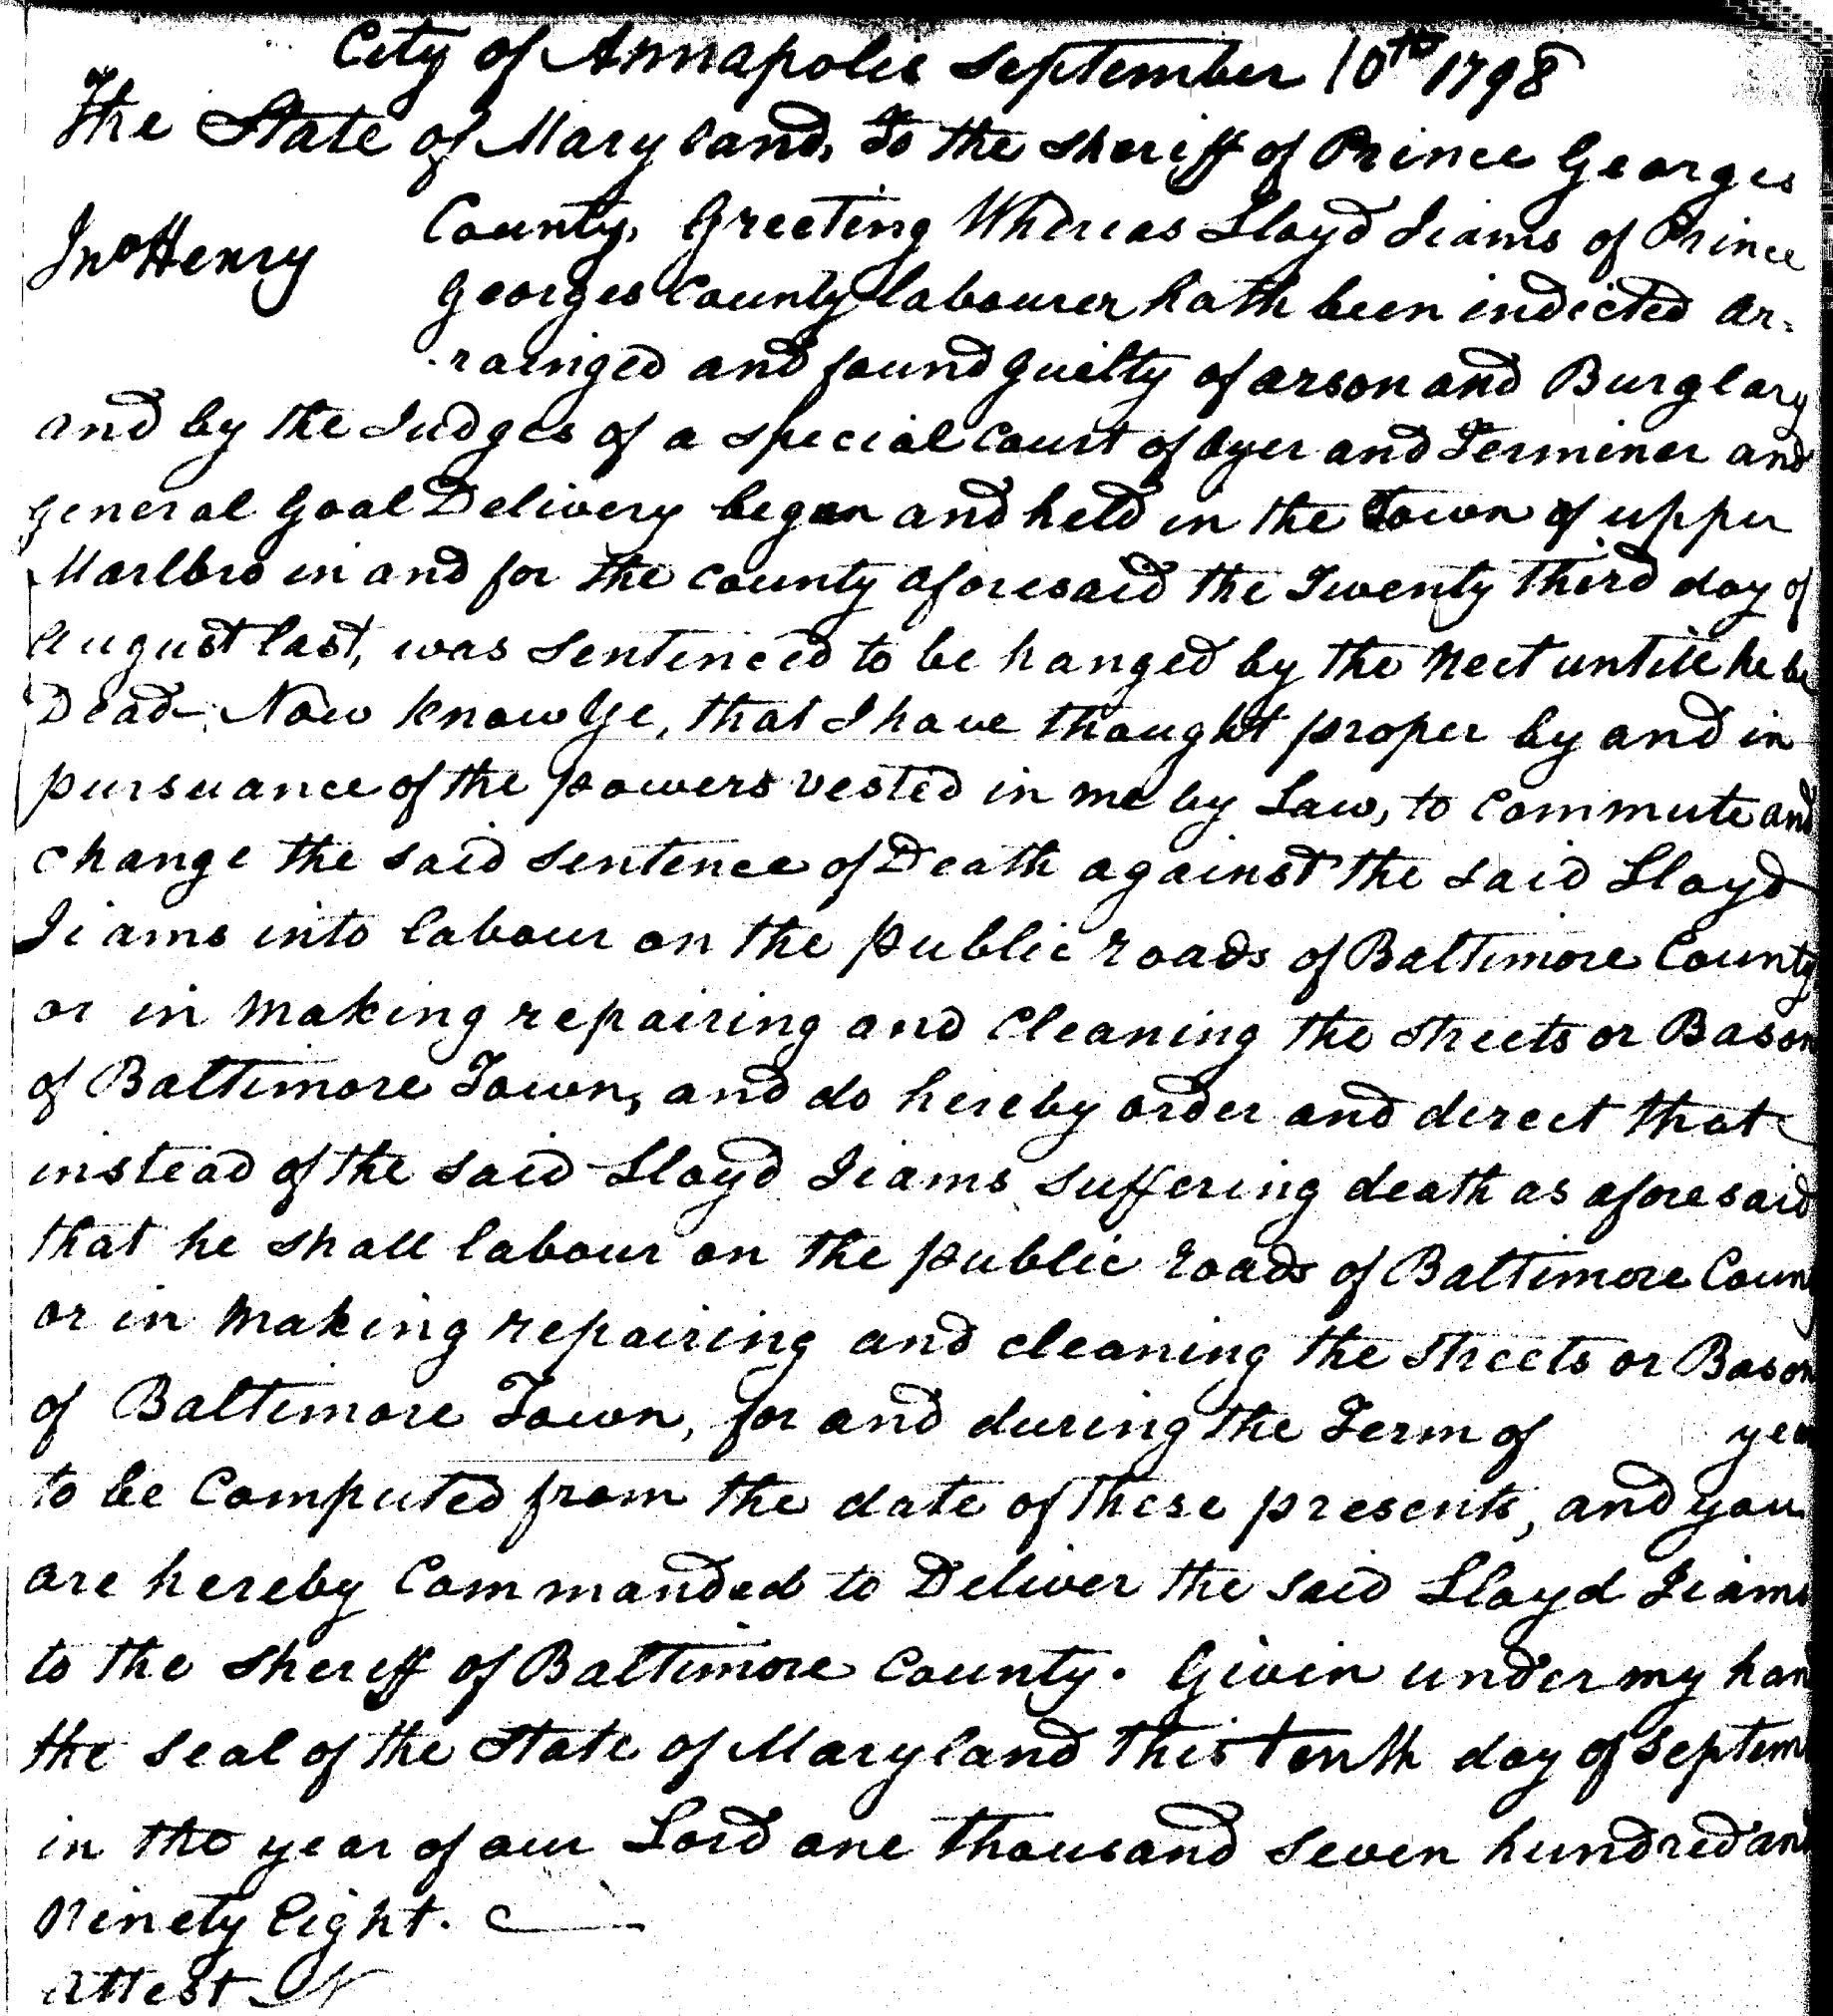 City of Annapolis September 10th 1798
The State of Maryland, To the Sheriff of Prince Georges
Jno Henry
County, Greeting Whereas Lloyd Iiams of Prince
Georges County labourer hath been indicted ar-
-rainged and found guilty of arson and Burglary
and by the Judges of a special Court of Oyer and Terminer and
general Goal Delivery began and held in the Town of upper
Marlbro in and for the County aforesaid the Twenty third day of
August last, was sentenced to be hanged by the Nect untill he be
Dead - Now know Ye, that I have thought proper by and in
pursuance of the powers vested in me by Law, to Commute and
change the said sentence of Death against the said Lloyd
Iiams into labour on the public roads of Baltimore County
or in making repairing and Cleaning the streets or Bason
of Baltimore Town, and do hereby order and direct that
instead of the said Lloyd Iiams suffering death as aforesaid
that he shall labour on the public roads of Baltimore Coun
or in making repairing and cleaning the streets or Bason
of Baltimore Town, for and during the Term of yea
to be Computed from the date of these presents, and you
are hereby Commanded to Deliver the said Lloyd Iiams
to the Sheriff of Baltimore County. Givin under my han
the seal of the State of Maryland this tenth day of Septem
in the year of our Lord one thousand seven hundred and
Ninety Eight.
Attest